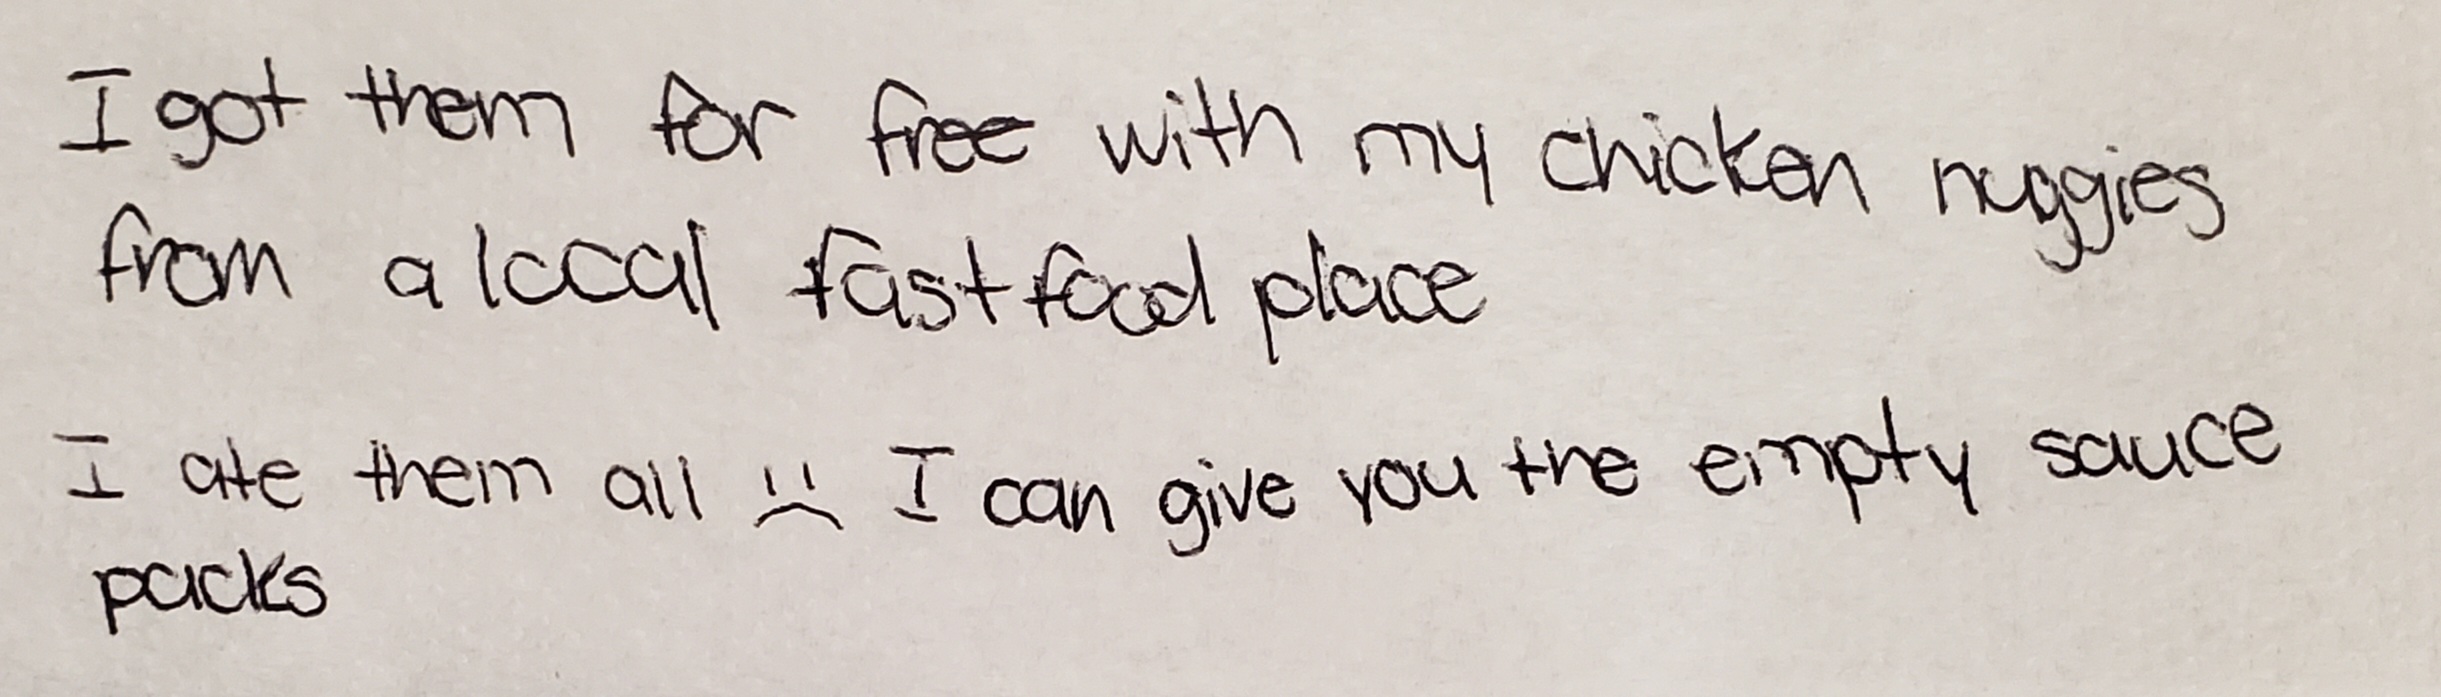 I got them for free with my chicken nuggies
from a local fast food place
I ate them all :( I can give you the empty sauce
packs